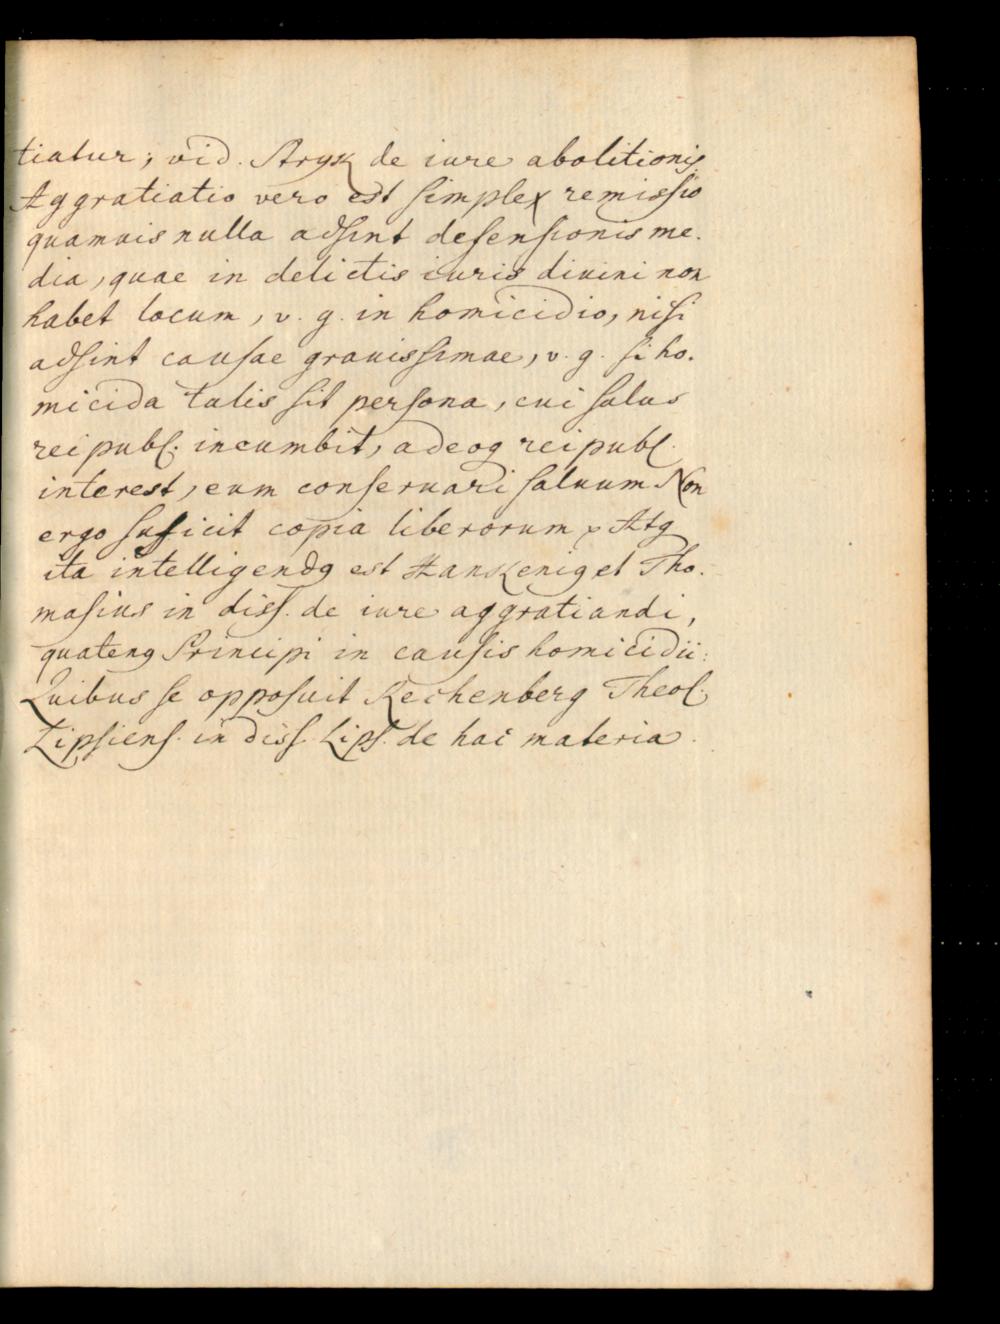 tiatur; vid. Stryk de iure abolitionis
Aggratiatio vero est simplex remissio
quamuis nulla adsint defensionis me-
dia, quae in delictis iuris diuini non
habet locum, v. g. in homicidio, nisi
adsint causae grauissimae, v. g. si ho-
micida talis sit persona, cui salus
rei publ. incumbit, adeoq rei publ.
interest, eum conseruari saluum Non
ergo suficit copia liberorum Atq
ita intelligendg est et Tho-
masius in diss. de iure aggratiandi,
quateng Principi in causis homicidii:
Quibus se opposuit Rechenberg Theol.
Lipsiens. in diss. Lips. de hac materia.